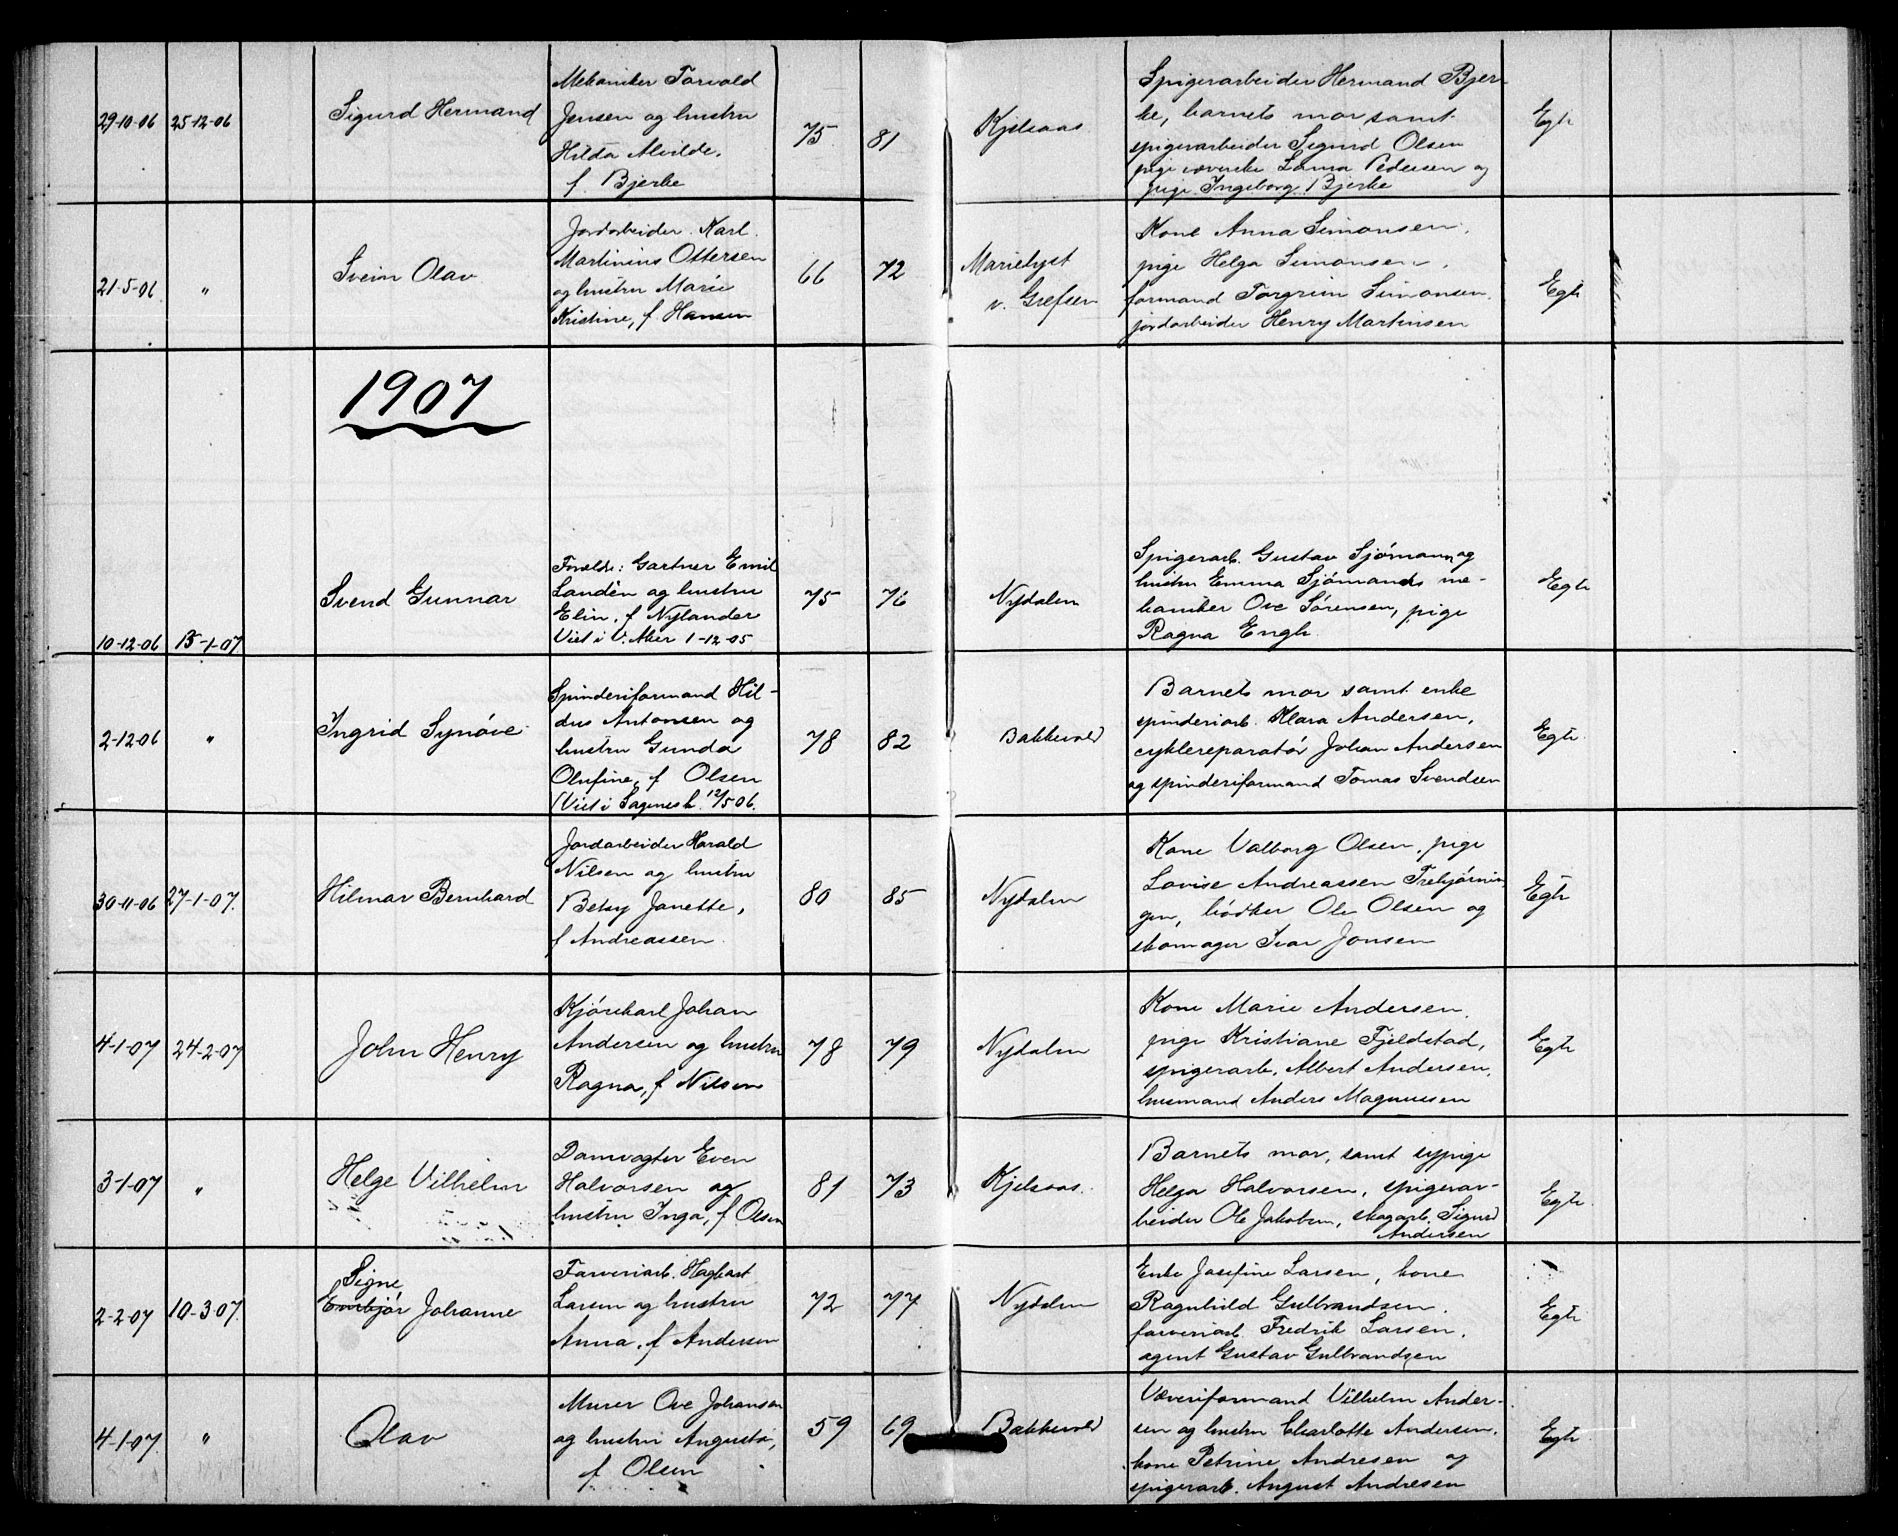 29-10-06 25-12-06
Sigurd Hermand
Mekaniker Torvald
Jensen og hustru
Hilda Alvilde,
f. Bjerke
75 81
Kjelsaas
Spigerarbeider Hermand Bjer-
ke, barnets mor samt
spigerarbeider Sigurd Olsen
pige væverske Laura Pedersen og
pige Ingeborg Bjerke
Egte
21-5-06 "
Svein Olav
Jordarbeider Karl
Martinius Ottersen
og hustru Marie
Kristine, f Hansen
66 72
Marielyst
v. Grefsen
Kone Anna Simonsen,
pige Helga Simonsen,
formand Torgrim Simonsen,
jordarbeider Henry Martinsen
Egte
1907
10-12-06 15-1-07
Svend Gunnar
Forældr: Gartner Emil
Landén og hustru
Elin, f Nylander
Viet i V. Aker 1-12-05
75 76
Nydalen
Spigerarb. Gustav Sjömann og
hustru Emma Sjömands me-
kaniker Ove Sörensen, pige
Ragna Engh.
Egte
2-12-06 "
Ingrid Synöve
Spinderiformand Hil-
dus Antonsen og
hustru Gunda
Olufine, f Olsen
Viet i Sagenesk. 12/5 06.
78 82
Bakkevold
Barnets mor samt enke
spinderiarb. Klara Andersen,
cyklereparatör Johan Andersen
og spinderiformand Tomas Svendsen
Egte
30-11-06 27-1-07.
Hilmar Bernhard
Jordarbeider Harald
Nilsen og hustru
Betsy Janette,
f Andreassen.
80 85
Nydalen
Kone Valborg Olsen, pige
Lovise Andreassen Trehjörnin
gen, bödker Ole Olsen og
skomager Ivar Jonsen
Egte
4-1-07 24-2-07
John Henry
Kjörekarl Johan
Andersen og hustru
Ragna, f Nilsen
78 79
Nydalen
Kone Marie Andersen,
pige Kristiane Fjeldstad,
spigerarb. Albert Andersen,
husmand Anders Magnussen
Egte
3-1-07 "
Helge Vilhelm
Damvogter Even
Halvorsen og
hustru Inga, f Olsen
81 73
Kjelsaas.
Barnets mor, samt sypige
Helga Halvorsen, spigerar-
beider Ole Jakobsen, skogarb. Sigurd
Andersen
Egte
2-2-07 10-3-07.
Signe
Johanne
Farveriarb. Hagbart
Larsen og hustru
Anna, f Andersen
72 77
Nydalen
Enke Josefine Larsen, kone
Ragnhild Gulbrandsen,
farveriarb. Fredrik Larsen,
agent Gustav Gulbrandsen
Egte
4-1-07. "
Olav
Murer Ove Johansen
og hustru Augusta,
f Olsen
59 69
Bakkevold
Væveriformand Vilhelm Ander-
sen og hustru Charlotte Andersen,
kone Petrine Andresen og
spigerarb. August Andresen
Egte